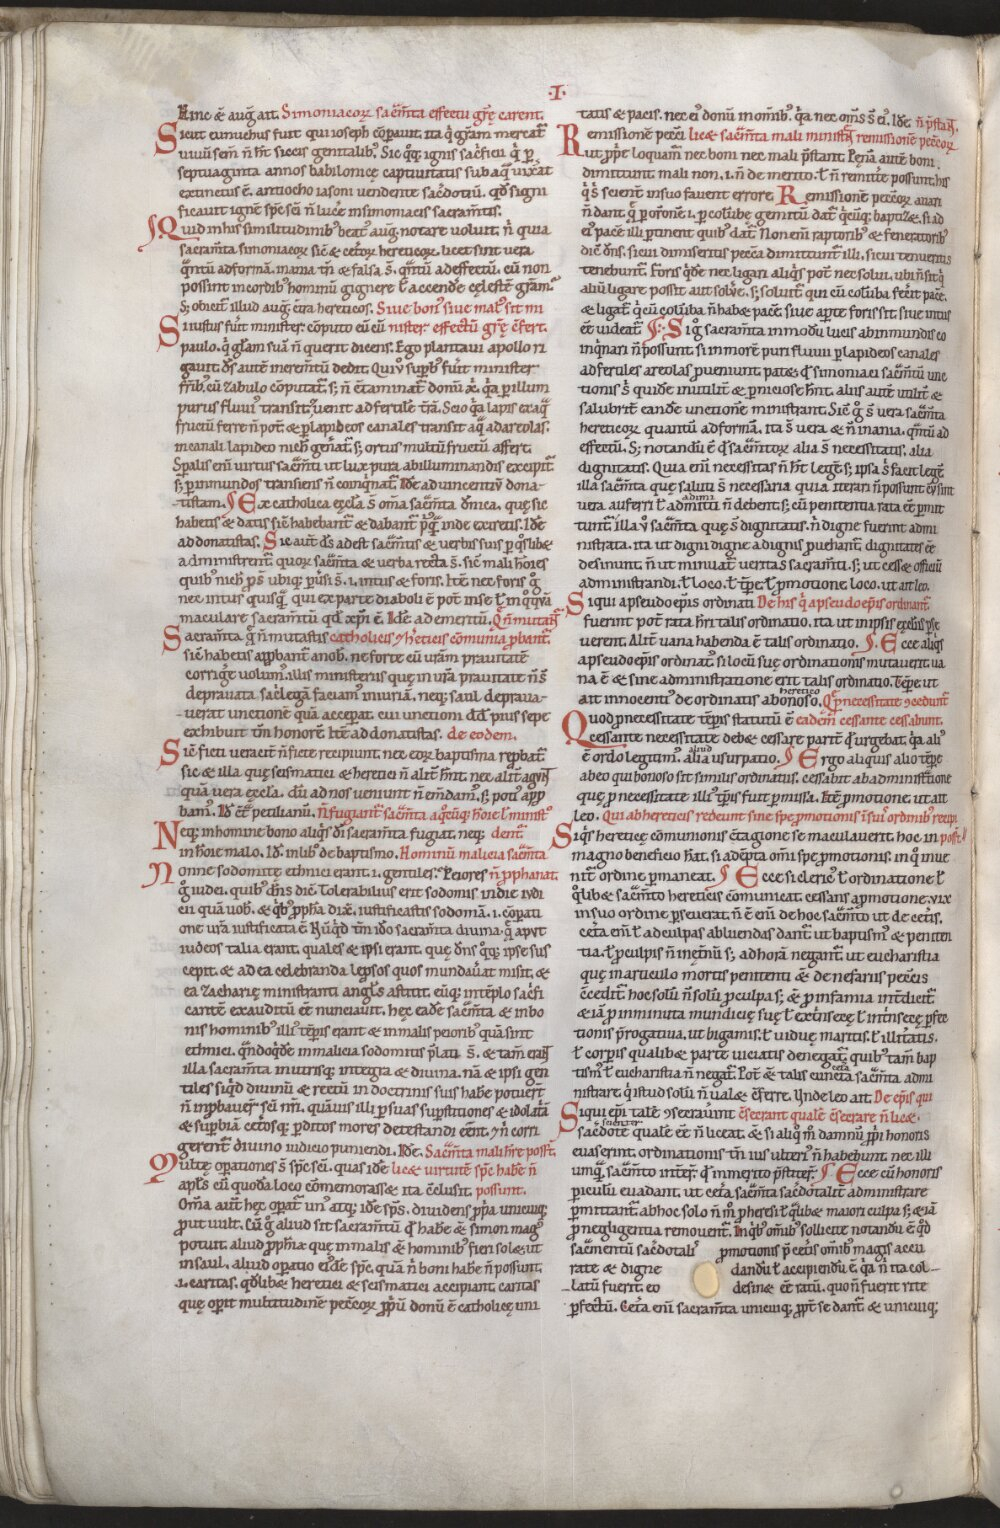 ·I·
Hinc & aug̃ ait. Simoniacoꝝ sac̃m̃ta effectu gr̃e carent.
Sicut eunuchus fuit qui ioseph cõparauit. ita
uiuũ sem̃ ñ ht̃ siccis genitalib;
septuaginta annos babilonicę captiuitatis sub aqua
extinctus ẽ. antiocho iasoni uendente sac̃dotiũ. qđ signi
ficauit ignẽ sp̃c sc̃i ñ luc̃e in simoniacis sacram̃tis.
Quid in his similitudinib; beat' aug; notare uoluit. ñ quia
sacram̃ta simoniacoꝝ sic̃ & cet̃oꝝ hereticoꝝ. licet sint uera
qñtũ ad formã. inania tñ & falsa s̃. qñtũ ad effectũ. cũ non
possint in cordib; hominũ gignere ł accende cęlestẽ gram̃
S; obicit' illud aug̃ c̃tra hereticos. Siue bon' siue mal' sit mi
Si iustus fuit minister. cõputo eũ cũ nister. effectũ gr̃e c̃fert.
paulo. q̃ gl̃am suã ñ querit dicens. Ego plantaui apollo ri
gauit. d̃s autẽ incremtũ dedit. Qui ů supb' fuit minister
cũ zabulo cõputat̃. s; ñ c̃taminat̃ donũ x̃. q̃a p illum
purus fluui' transit. uenit ad fertilẽ t̃rã. Scio q̃a lapis ex aq̃
fructũ ferre ñ pot̃. & p lapideos canales transit aq̃ ad areolas.
in canali lapideo nich̃ gen̾at̃. s; ortus multũ fructũ affert.
Sp̃alis eni virtus sac̃m̃ti ut lux pura ab illuminandis excipit̃
s; p inmundos transiens ñ coinq̃nat̃. Idẽ ad uincentiũ dona
tistam. Ex catholica ęccl̃a s̃ om̃a sac̃m̃ta dñica. quę sic
habetis & datis sic̃ habebant̃ & dabant̃ p̾usq̃ inde exiretis. Idẽ
ad donatistas. Sic aut̃ d̃s adest sac̃m̃tis & verbis suis p q̃slib&
administrent̃ quor̃ sac̃m̃ta & uerba recta s̃. sic̃ mali hoĩes
quib; nich̃ p̃s̃ ubiq; p̃uersi s̃. i. intus & foris. Itẽ. nec foris
nec intus quisq̃. qui ex parte diaboli ẽ pot̃ in se ł in q̃q̃uã
maculare sacram̃tũ qđ xp̃i ẽ. Idẽ ad emeritũ.
Sacram̃ta. q̃ ñ mutastis catholicis & h̃eticis cõmunia p̃bant̃.
sic̃ habetis app̃bant̃ a nob̃. ne forte cũ ur̃am prauitatẽ
corrig̾e uolum'. illis ministeriis quę in ur̃a prauitate ñ s̃
deprauata sac̃legã faciam' iniuriã. neq; saul depraua
uerat unctionẽ quã acceperat. cui unctioni d̃đ pius sepe
exhibuit tñ honorẽ. Itẽ ad donatistas. de eodem.
Si c̃ ficti ueracit̃ ñ ficte recipiunt. nec eoꝝ baptisma rep̃bat̃
sic & illa quę scismatici & heretici ñ alit̃ hñt. nec alit̃
quã uera ęccl̃a. dũ ad nos ueniunt ñ em̃dam'. s; poti' app̃
bam'. petilianũ. ñ fugiant̃ sac̃m̃ta a quocũq; hoĩe ł minist'
Neq; in homine bono aliq̃s d̃i sacram̃ta fugiat. neq; dent̃
in hoĩe malo. Id̃. in lib' de baptismo. Hominũ malicia sac̃m̃ta
Nonne sodomitę ethnici erant. i. gentiles. Peiores ñ p̃phanat.
g̾ iudei. quib; dñs dic̃. Tolerabilius erit sodomis in die iudi
cii quã uob̃. & q̃b; pp̃h̃a dix̃. iustificastis sodomã. i. c̃parati
one ur̃a iustificata ẽ. Nũqđ tñ id̃o sacram̃ta diuina q̃ aput
iudeos talia erant. quales & ipsi erant. quę dñs q̃q; ipse sus
cepit. & ad ea celebranda leprosos quos mundau̾at misit. &
ea zacharię ministranti angl̃s astitit. eũq; in tẽplo sac̃fi
cantẽ exauditũ eẽ nunciauit. hęc eadẽ sac̃m̃ta & in bo
nis hominib; illi' t̃pis erant & in malis peiorib' quã sint
ethnici. qñdoq̃dẽ in malicia sodomitis p̃lati s̃. & tam̃
illa sacram̃ta in utrisq; integra & diuina. nã & ipsi gen
tiles siq̃d diuinũ & rectũ in doctrinis suis hab̃e potuer̃t
ñ inp̃bauer̃t sc̃i nr̃i. quãuis illi p suas sup̃stitiones & idolat̃ã
& supbiã cet̃osq; p̾ditos mores detestandi eẽnt. & ñ corri
gerent̃ diuino iudicio puniendi. Idẽ. Sac̃m̃ta mali h̃re poss̃t.
Multę op̃ationes s̃ sp̃c sc̃i. quas idẽ licẽ uirtutẽ sp̃c hab̃e ñ
ap̃ls cũ quodã loco cõmemorass& ita c̃clusit. possunt.
Om̃a aut̃ hęc op̃at̃ un' atq; idẽ sp̃s. diuidens p̃p̃a unicuiq;
prout uult. Cũ g̾ aliud sit sacram̃tũ q̃ hab̃e & simon mag'
potuit. aliud p̃phia quę in malis & hominib; fieri sol& ut
in saul. aliud op̃atio ei'dẽ sp̃c. quã ñ boni hab̃e ñ possunt.
.i. caritas. q̃dlib& heretici & scismatici accipiant. caritas
quę op̃it multitudinẽ pecc̃oꝝ p̃p̃ũ donũ ẽ catholicę uni
tatis & pacis. nec ei' donũ in om̃ib;. q̃a nec om̃s s̃ ei'. Idẽ. ñ p̃stan̾t.
Remissionẽ pecc̃i licẽ sac̃m̃ta mali ministr̃t remissionẽ pecc̃oꝝ
ut p̃p̃e loquam̃ nec boni nec mali p̃stant. Pęniã autẽ boni
dimittunt mali non. i. ñ de merito. ł ñ remitt̃e possunt. his
q̃s̃ scient̃ in suo fauent errore. Remissionẽ pecc̃oꝝ auari
ñ dant. q̃ p or̃onẽ .i. p colũbę gemitũ dat̃ q̃cũq; baptiz&. si ad
ei' pacẽ illi ptinent quib; dat̃. Non eni raptorib; & feneratorib;
dic̃ dñs. si cui dimiseritis pecc̃a dimittunt̃ illi. si cui tenueritis
tenebunt̃. Foris q̃dẽ nec ligari aliq̃s pot̃ nec solui. ubi ñ sit q̃
aliũ ligare possit aut solu̾e. s; soluit̃ qui cũ colũba fec̾it pacẽ.
& ligat̃ q̃ cũ colũba ñ hab& pacẽ. siue ap̾te foris sit siue intus
eẽ uideat̃. Sic̃ g̾ sacram̃ta in modũ lucis ab inmundis co
inq̃nari ñ possunt. si in morẽ puri fluuii p lapideos canales
ad fertiles areolas p̃ueniunt. pat&. q̃ simoniaci sac̃m̃tũ unc
tionis q̃ quidẽ inutilit̃ & p̾niciose hñt. aliis autẽ utilit̃ &
salubrit̃ eandẽ unctionẽ ministrant. Sic̃ g̾ s̃ vera sac̃m̃ta
hereticoꝝ quantũ ad formã. ita s̃ vera & ñ inania. q̃ntũ ad
effectũ. S; notandũ ẽ q̃ sac̃m̃toꝝ alia s̃ necessitatis. alia
dignitatis. Quia eni necessitas ñ ht̃ legẽ. s; ipsa s̃ facit legẽ
illa sac̃m̃ta quę saluti s̃ necessaria quia iterari ñ possunt cũ sint
uera auferri ł admitti ñ debent. s; cũ penitentia rata eẽ p̾mit
adimi
tunt̃. illa ů sac̃m̃ta quę s̃ dignitatis. ñ digne fuerint admi
nistrata. ita ut digni digne a dignis p̃uehant̃. dignitates eẽ
desinunt. ñ ut minuat̃ ueritas sacram̃ti. s; ut cess& officiũ
administrandi. ł loco. ł t̃pe. ł p̃motione. loco. ut ait leo.
Si qui a pseudoep̃is ordinati De his q̃ a pseudoep̃is ordinant̃
fuerint pot̃ rata h̃ri talis ordinatio. ita ut in ipsis ęccl̃iis p̃se
uerent. Alit̃ uana habenda ẽ talis ordinatio. Ecce aliq̃s
a pseudoep̃is ordinat'. si locũ suę ordinationis mutauerit. ua
na ẽ & sine administratione erit talis ordinatio. T̃pe. ut
ait innocenti' de ordinatis a bonoso. Q̃ p̃ necessitate & cedunt̃
heretico
Quod p̃ necessitate t̃pis statutũ ẽ eadẽm cessante cessabunt.
cessante necessitate deb& cessare parit̃ q̃ urgebat. q̃a ali'
ẽ ordo legitim'. alia usurpatio. Ergo aliquis alio t̃pe
aliud
ab eo qui bonoso sit similis ordinatus. cessabit ab administratione
quę p̃ necessitate illi' t̃pis fuit p̾missa. Itẽ p̃motione. ut ait
leo. Qui ab hereticis redeunt sine spe p̃motionis in suis ordinib; recipi
Siq̃s hereticę cõmunionis c̃tagione se maculauerit. hoc in poss̃t.
magno beneficio h̾at. si adẽpta om̃i spe p̃motionis. in q̃ inue
nit̃ ordine p̾maneat. Ecce si cleric' ł ordinatione ł
q̃lib& sac̃m̃to hereticis cõmunicat. cessans a p̃motione. uix
in suo ordine p̾seuerat. ñ ẽ eni de hoc sac̃m̃to ut de cet̾is.
cet̃a eni ł ad culpas abluendas dant̃ ut baptism' & peniten
tia. ł p̃ culpis ñ in et̾nũ s; ad horã negant̃. ut eucharistia
quę in articulo mortis penitenti & de nefariis pecc̃is
c̃cedit̃. hoc solũ ñ solũ p̃ culpa s; & p̃ infamia int̾dicit̃
& iã p̃ inminuta mundicię suę ł ext̾nsecę ł int̾insecę p̾fec
tionis p̃rogatiua. ut bigamis. ł uiduę maritis. ł illit̾atis.
ł corp̃is qualib& parte uiciatis denegat̃. quib; tam̃ bap
tism' ł eucharistia ñ negat̃. Pot̃ & talis cuncta sac̃m̃ta admi
cet̃a
nistrare. q̃ istud solũ ñ ual& c̃ferre. Unde leo ait. De ep̃is qui
Siqui ep̃i talẽ & secrauunt c̃secrant qualẽ c̃secrare ñ lic&.
scient̾
sac̃dotẽ qualẽ eẽ ñ liceat. & si aliq̃ m̃ damnũ p̃p̃i honoris
euaserint. ordinationis tñ ius ulteri' ñ habebunt. nec illi
umq̃ sac̃m̃to int̾er̃. q̃ inmerito p̃stiter̃. Ecce cũ honoris
piculũ euadant. ut cet̃a sac̃m̃ta sac̃dotalit̃ administrare
p̾mittant̃. ab hoc solo ñ m̃ p̃ heresi ł q̃lib& maiori culpa s; & iã
p̃ negligentia remouent̃. In q̃b; om̃ib; sollicite notandũ ẽ qđ
sac̃m̃tũ sac̃dotalis p̃motionis p̃ cet̾is om̃ib; magis accu
rate & digne dandũ ł accipiendũ ẽ. q̃a ñ ita col
latũ fuerit. eo desin& eẽ ratũ. quo ñ fuerit rite
p̾fectũ. Cet̃a eni sacram̃ta unicuiq; p̃p̾t̾ se dant̃ & unicuiq;